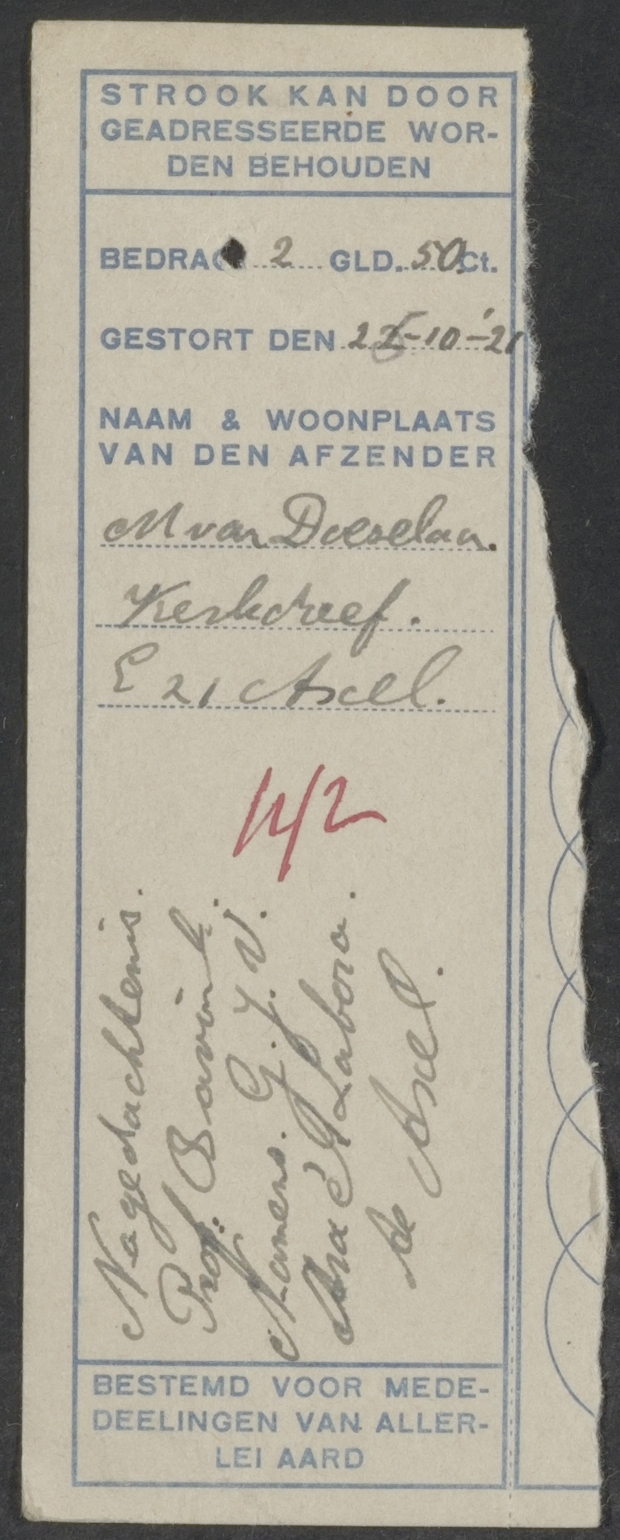 STROOK KAN DOOR
GEADRESSEERDE WOR-
DEN BEHOUDEN
BEDRAG 2 GLD. 50 Ct.
GESTORT DEN -10-'21
NAAM & WOONPLAATS
VAN DEN AFZENDER
M van Doeselaar.
Kerkdreef.
E 21 Axel.
Nagedachtenis.
Prof. Bavink.
Namens. G. J. V.
Ora et Labora.
te Axel.
BESTEMD VOOR MEDE-
DEELINGEN VAN ALLER-
LEI AARD